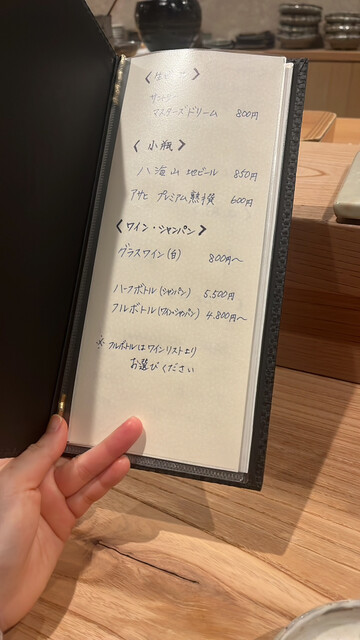 〈生ビール〉
サントリー
マスターズドリーム 800円
〈小瓶〉
八海山 地ビール 850円
アサヒ プレミアム熟撰 600円
〈ワイン・シャンパン〉
グラスワイン(白) 800円〜
ハーフボトル(シャンパン) 5.500円
フルボトル(ワイン・シャンパン) 4.800円〜
※ フルボトルはワインリストより
お選びください